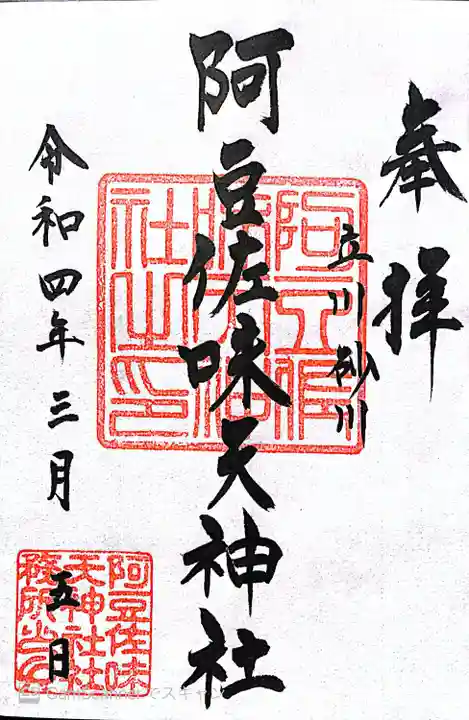 奉拝
立川砂川
阿豆佐味天神社
令和四年三月五日
阿豆佐味
天神社社
務所之印